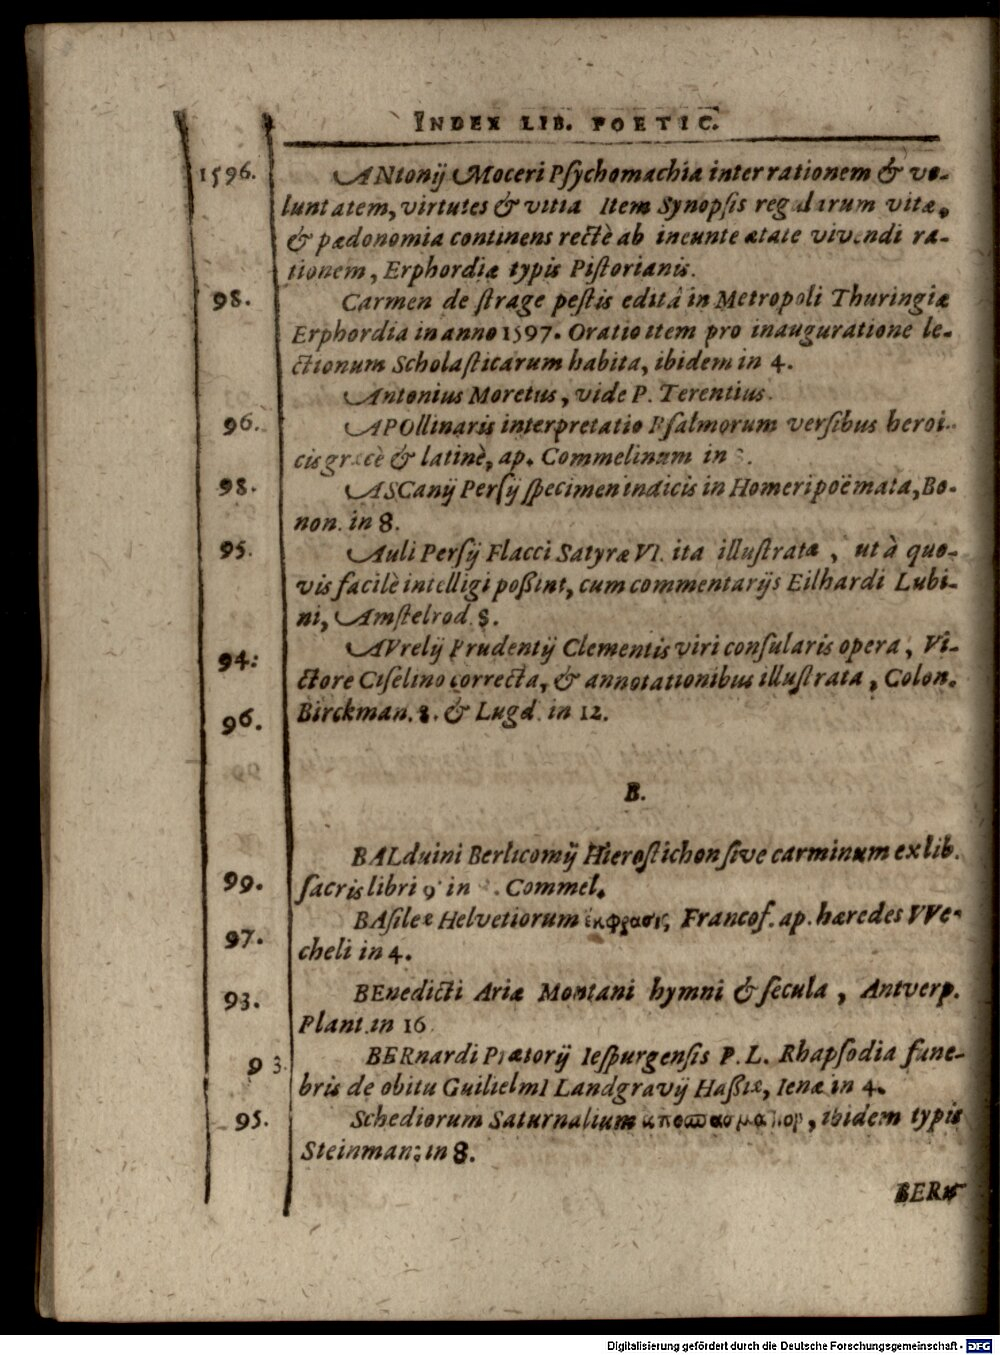 INDEX LIB. POETIC.
1596. ANtonij Moceri Psychomachia inter rationem & vo-
luntatem, virtutes & vitia Item Synopsis regularum vitæ,
& pædonomia continens rectè ab ineunte ætate vivendi ra-
tionem, Erphordiæ typis Pistorianis.
98. Carmen de strage pestis editâ in Metropoli Thuringiæ
Erphordia in anno 1597. Oratio item pro inauguratione le-
ctionum Scholasticarum habita, ibidem in 4.
Antonius Moretus, vide P. Terentius.
96. APOllinaris interpretatio Psalmorum versibus heroi-
cis græcè & latinè, ap. Commelinum in
98. ASCanij Persij specimen indicis in Homeri poëmata, Bo-
non. in 8.
95. Auli Persij Flacci Satyræ VI. ita illustratæ, ut à quo-
vis facilè intelligi poßint, cum commentarijs Eilhardi Lubi-
ni, Amstelrod. 8.
94. AVrelij Prudentij Clementis viri consularis opera, Vi-
ctore Ciselino correcta, & annotationibus illustrata, Colon.
96. Birckman. 8. & Lugd. in 12.
B.
BALduini Berlicomij Hierostichon sive carminum ex lib.
99. sacris libri 9 in . Commel.
BAsileæ Helvetiorum ἐκφρασις, Francof. ap. hæredes VVe-
97. cheli in 4.
93. BEnedicti Ariæ Montani hymni & secula, Antverp.
Plant. in 16
93. BERnardi Prætorij Iespurgensis P. L. Rhapsodia fune-
bris de obitu Guilielmi Landgravij Haßiæ, Ienæ in 4.
95. Schediorum Saturnalium , ibidem typis
Steinman: in 8.
BER-
Digitalisierung gefördert durch die Deutsche Forschungsgemeinschaft - DFG